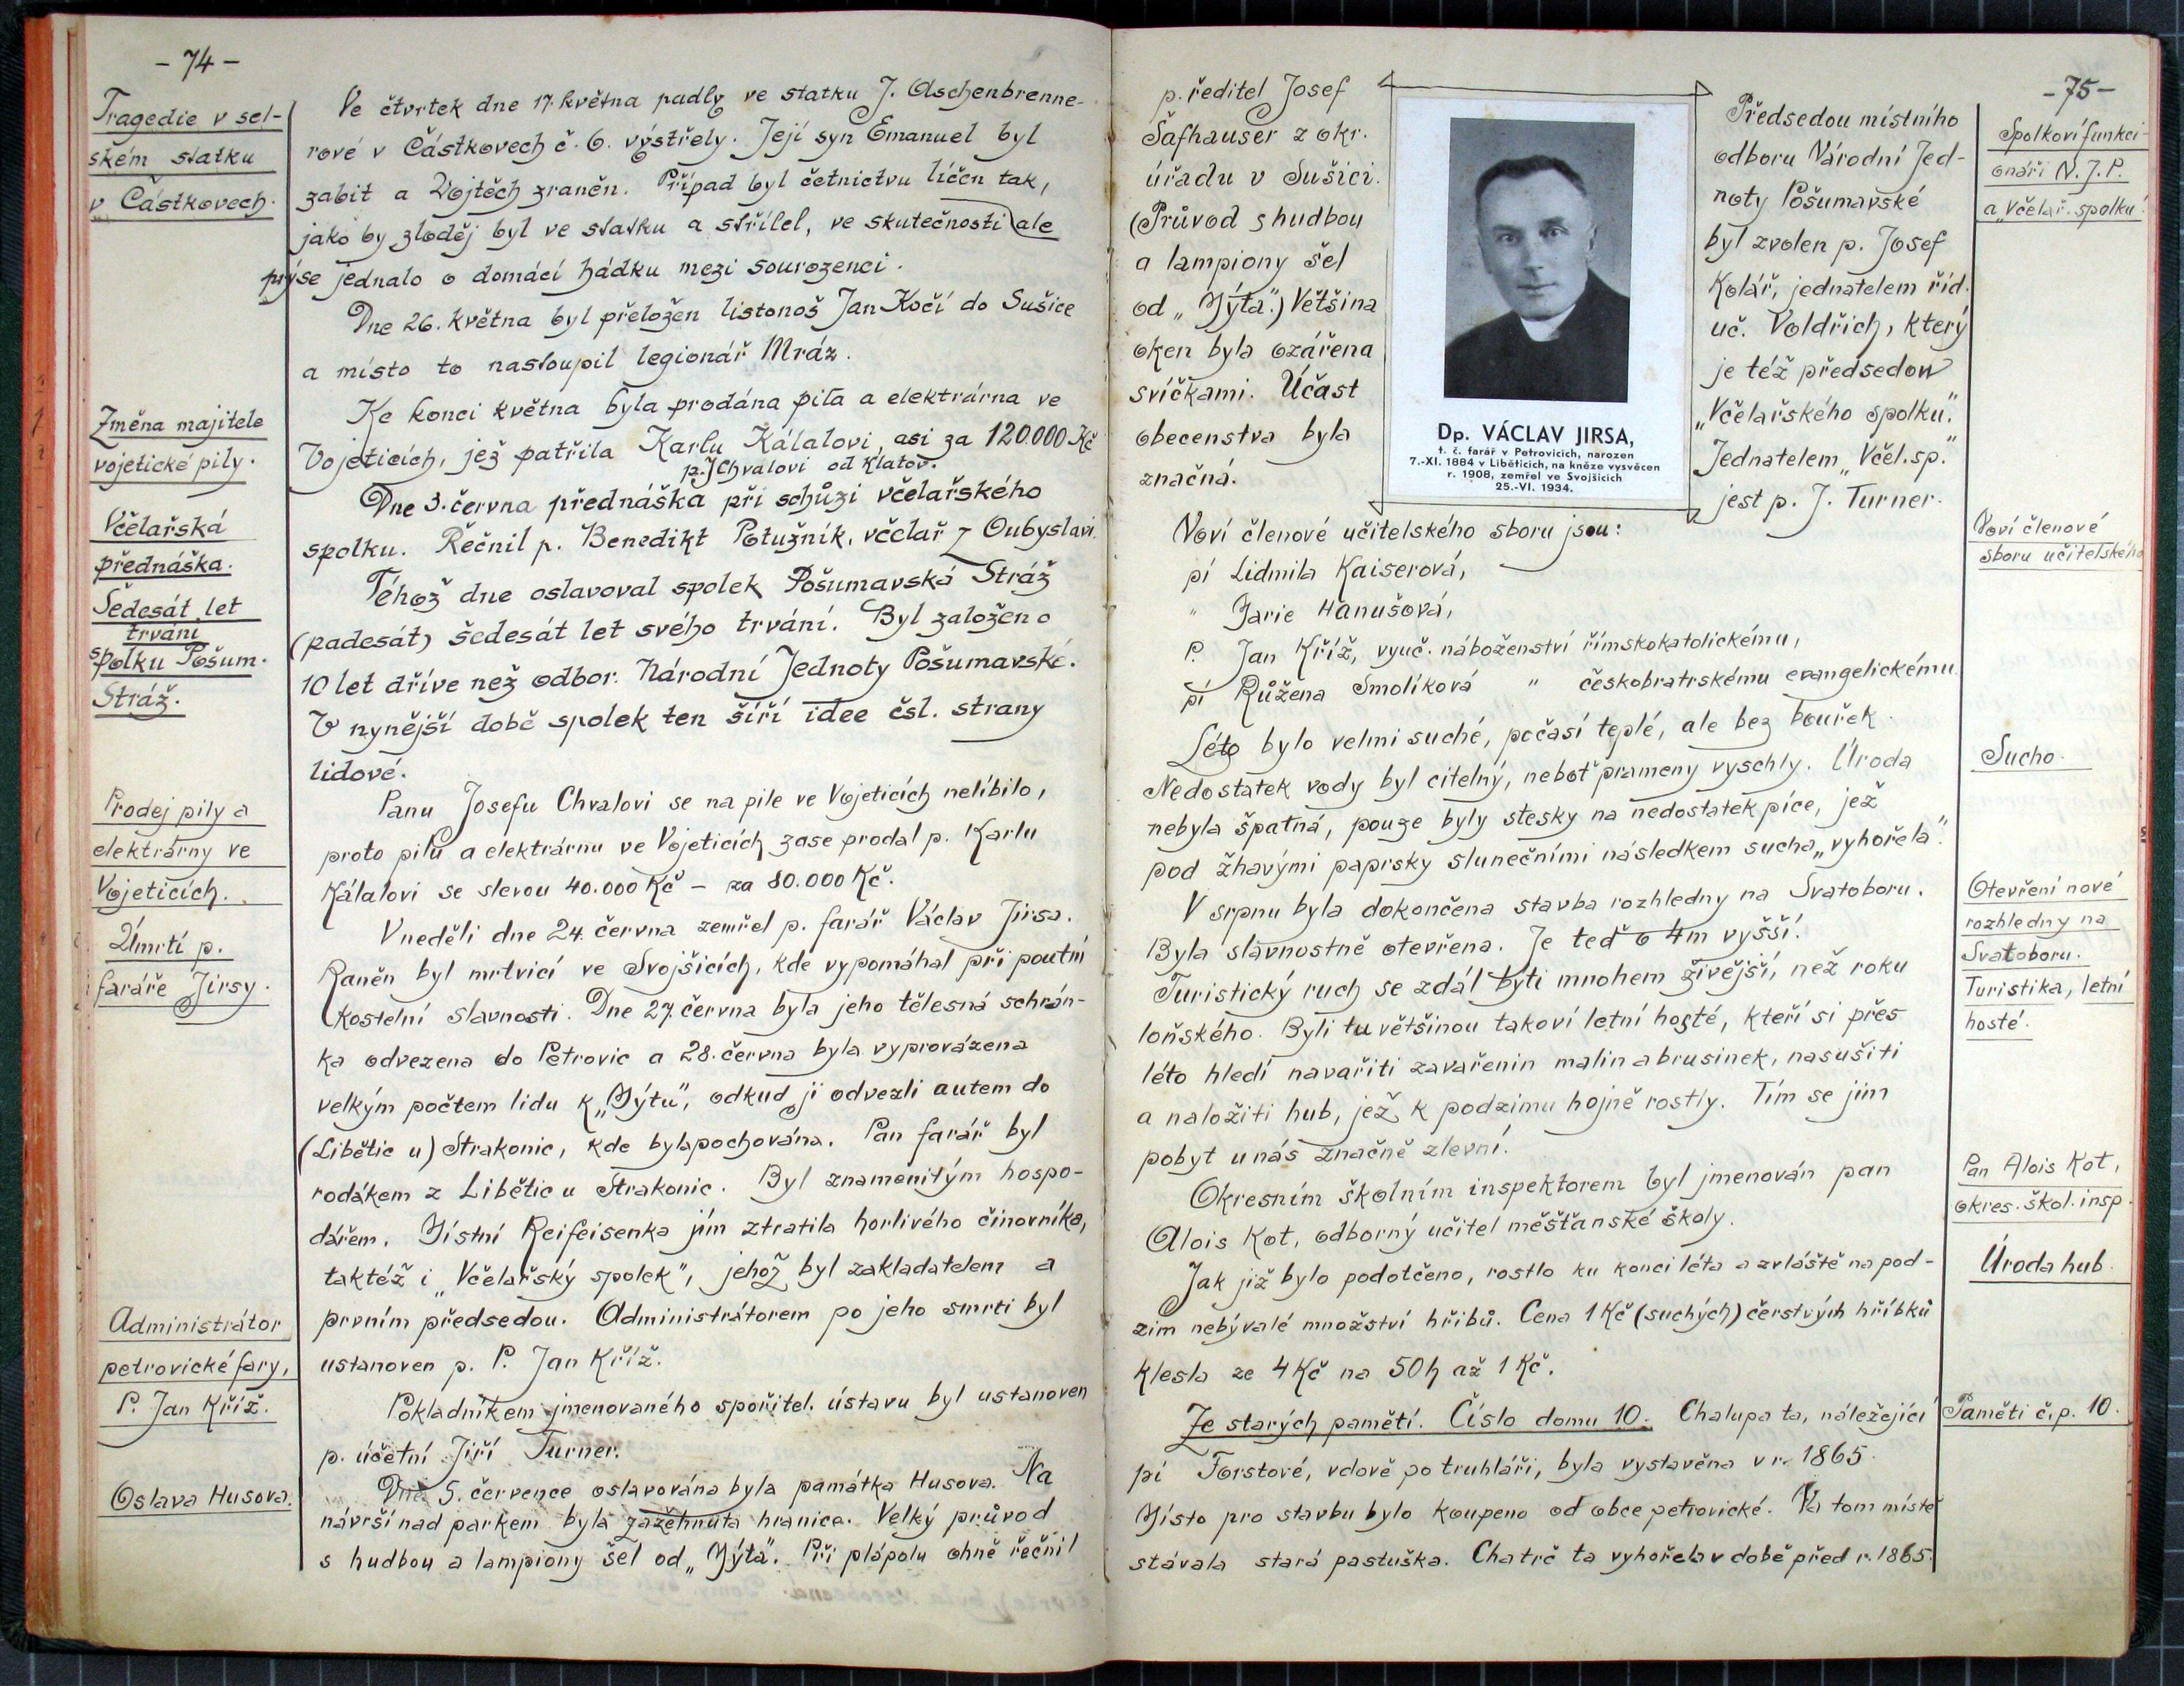 - 74 -
Tragedie v sel-
ském statku
v Částkovech.
Ve čtvrtek dne 17. května padly ve statku J. Aschenbrenne-
rové v Částkovech č. 6. výstřely. Její syn Emanuel byl
zabit a Vojtěch zraněn. Případ byl četnictvu líčen tak,
jako by zloděj byl ve statku a střílel, ve skutečnosti ale
prý se jednalo o domácí hádku mezi sourozenci.
Dne 26. května byl přeložen listonoš Jan Kočí do Sušice
a místo to nastoupil legionář Mráz.
Změna majitele
vojetické pily.
Ke konci května byla prodána pila a elektrárna ve
Vojeticích, jež patřila Karlu Kálalovi, asi za 120.000 Kč
p. J Chvalovi od Klatov.
Včelařská
přednáška.
Dne 3. června přednáška při schůzi včelařského
spolku. Řečnil p. Benedikt Potužník, včelař z Oubyslavi.
Šedesát let
trvání
spolku Pošum.
Stráž.
Téhož dne oslavoval spolek Pošumavská Stráž
(padesát) šedesát let svého trvání. Byl založen o
10 let dříve než odbor. Národní Jednoty Pošumavské.
V nynější době spolek ten šíří idee čsl. strany
lidové.
Prodej pily a
elektrárny ve
Vojeticích.
Panu Josefu Chvalovi se na pile ve Vojeticích nelíbilo,
proto pilu a elektrárnu ve Vojeticích zase prodal p. Karlu
Kálalovi se slevou 40.000 Kč - za 80.000 Kč.
Úmrtí p.
faráře Jirsy.
V neděli dne 24. června zemřel p. farář Václav Jirsa.
Raněn byl mrtvicí ve Svojšicích, kde vypomáhal při poutní
kostelní slavnosti. Dne 27. června byla jeho tělesná schrán-
ka odvezena do Petrovic a 28. června byla vyprovázena
velkým počtem lidu k „Mýtu", odkud ji odvezli autem do
(Libětic u) Strakonic, kde byla pochována. Pan farář byl
rodákem z Libětic u Strakonic. Byl znamenitým hospo-
dářem. Místní Reifeisenka jím ztratila horlivého činovníka,
taktéž i „Včelařský spolek", jehož byl zakladatelem a
Administrátor
petrovické fary,
P. Jan Kříž.
prvním předsedou. Administrátorem po jeho smrti byl
ustanoven p. P. Jan Kříž.
Pokladníkem jmenovaného spořitel. ústavu byl ustanoven
p. účetní Jiří Turner.
Oslava Husova.
Dne 5. července oslavována byla památka Husova. Na
návrší nad parkem byla zažehnuta hranice. Velký průvod
s hudbou a lampiony šel od „Mýta". Při plápolu ohně řečnil
- 75 -
p. ředitel Josef
Šafhauser z okr.
úřadu v Sušici.
(Průvod s hudbou
a lampiony šel
od „Mýta".) Většina
oken byla ozářena
svíčkami. Účast
obecenstva byla
značná.
Dp. VÁCLAV JIRSA,
t. č. farář v Petrovicích, narozen
7.-XI. 1884 v Liběticích, na kněze vysvěcen
r. 1908, zemřel ve Svojšicích
25.-VI. 1934.
Předsedou místního
odboru Národní Jed-
noty Pošumavské
byl zvolen p. Josef
Kolář, jednatelem říd.
uč. Voldřich, který
je též předsedou
„Včelařského spolku."
Jednatelem „Včel. sp."
jest p. J. Turner.
Spolkoví funkci-
onáři N. J. P.
a „Včelař. spolku".
Noví členové
sboru učitelského
Noví členové učitelského sboru jsou:
pí Lidmila Kaiserová,
" Marie Hanušová,
P. Jan Kříž, vyuč. náboženství římskokatolickému,
pí Růžena Smolíková " českobratrskému evangelickému.
Sucho.
Léto bylo velmi suché, počasí teplé, ale bez bouřek.
Nedostatek vody byl citelný, neboť prameny vyschly. Úroda
nebyla špatná, pouze byly stesky na nedostatek píce, jež
pod žhavými paprsky slunečními následkem sucha „vyhořela".
Otevření nové
rozhledny na
Svatoboru.
Turistika, letní
hosté.
V srpnu byla dokončena stavba rozhledny na Svatoboru.
Byla slavnostně otevřena. Je teď o 4m vyšší.
Turistický ruch se zdál býti mnohem živější, než roku
loňského. Byli tu většinou takoví letní hosté, kteří si přes
léto hledí navařiti zavařenin malin a brusinek, nasušiti
a naložiti hub, jež k podzimu hojně rostly. Tím se jim
pobyt u nás značně zlevní.
Pan Alois Kot,
okres. škol. insp.
Okresním školním inspektorem byl jmenován pan
Alois Kot, odborný učitel měšťanské školy.
Úroda hub.
Jak již bylo podotčeno, rostlo ku konci léta a zvláště na pod-
zim nebývalé množství hřibů. Cena 1 Kč (suchých) čerstvých hříbků
klesla ze 4 Kč na 50 h až 1 Kč.
Paměti č.p. 10.
Ze starých pamětí. Číslo domu 10. Chalupa ta, náležející
pí Forstové, vdově po truhláři, byla vystavěna v r. 1865.
Místo pro stavbu bylo koupeno od obce petrovické. Na tom místě
stávala stará pastuška. Chatrč ta vyhořela v době před r. 1865.